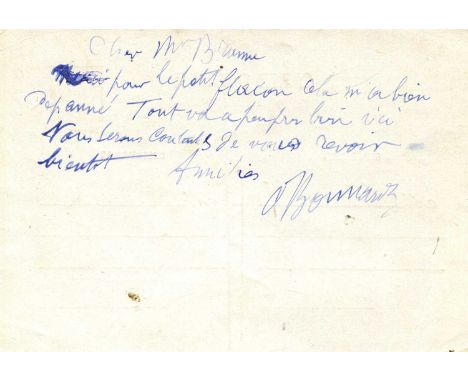 Cher Mr
pour le petit flacon cela m'a bien
Depanné Tout va a peu pres bien ici
Nous serons Contents de vous revoir
bientot Amitiés